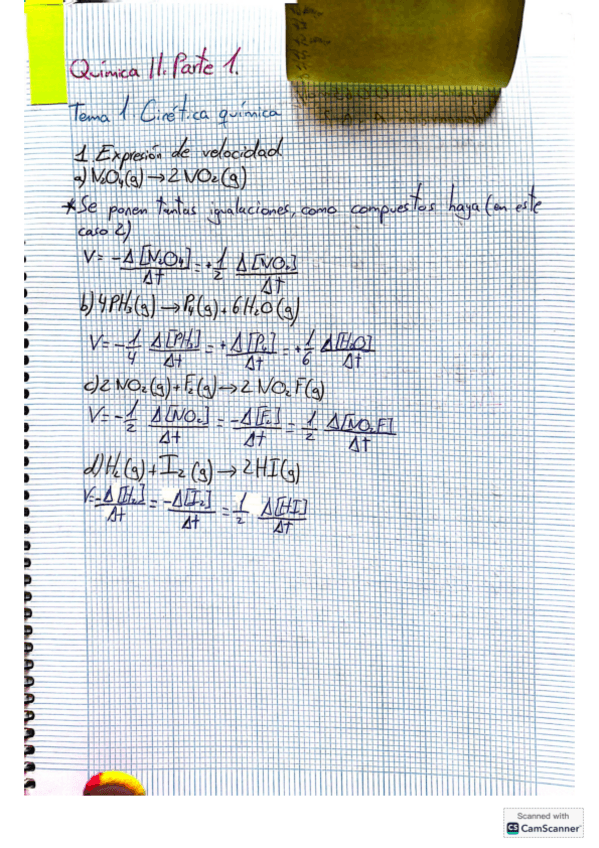 Química II. Parte 1.
Tema 1. Cinética química
1. Expresión de velocidad
a) N₂O₄(g) → 2 NO₂(g)
*Se ponen tantas igualaciones, como compuestos haya (en este
caso 2)
V = -Δ[N₂O₄]/Δt = +1/2 Δ[NO₂]/Δt
b) 4PH₃(g) → P₄(g) + 6H₂O(g)
V = -1/4 Δ[PH₃]/Δt = +Δ[P₄]/Δt = +1/6 Δ[H₂O]/Δt
c) 2 NO₂(g) + F₂(g) → 2 NO₂F(g)
V = -1/2 Δ[NO₂]/Δt = -Δ[F₂]/Δt = 1/2 Δ[NO₂F]/Δt
d) H₂(g) + I₂(g) → 2HI(g)
V = -Δ[H₂]/Δt = -Δ[I₂]/Δt = 1/2 Δ[HI]/Δt
Scanned with
CS CamScanner